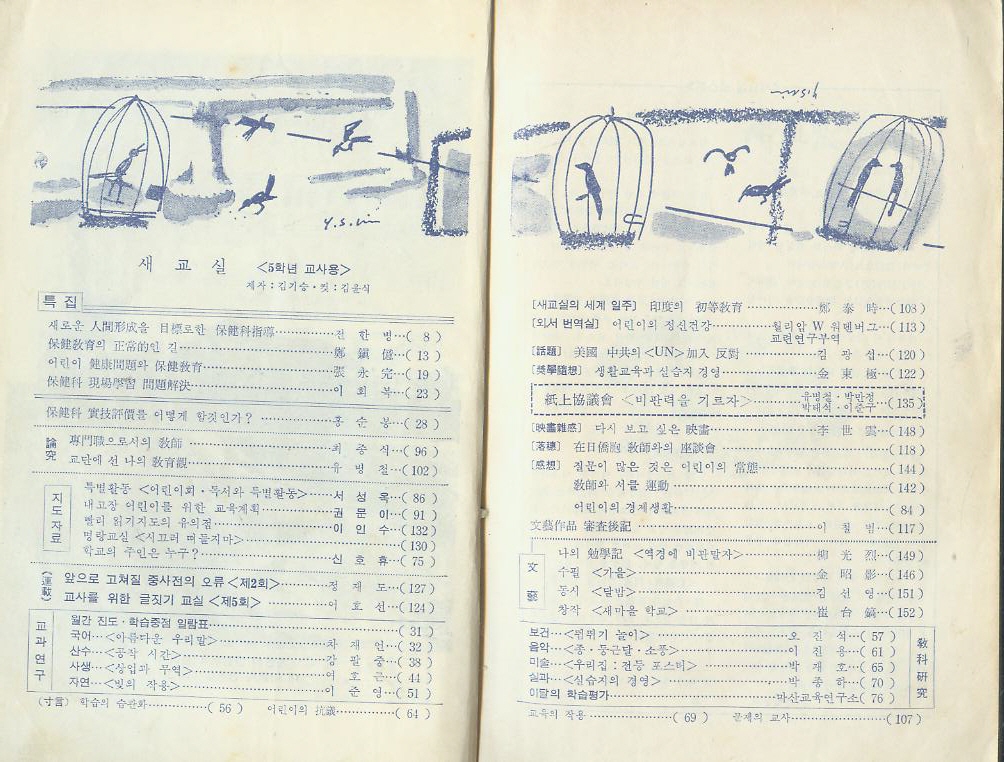 Y.S.Lim
새 교 실 <5학년 교사용>
제자:김기승·컷:김윤식
특 집
새로운 人間形成을 目標로한 保健科指導…………전 한 병…( 8 )
保健敎育의 正常的인 길…………鄭 鎭 億…( 13 )
어린이 健康問題와 保健敎育…………張 永 完…( 19 )
保健科 現場學習 問題解決…………이 희 복…( 23 )
保健科 實技評價를 어떻게 할것인가?…………홍 순 봉…( 28 )
論究
專門職으로서의 敎師…………최 중 식…( 96 )
교단에 선 나의 敎育觀…………유 병 철…(102 )
지도자료
특별활동 <어린이회·독서와 특별활동>……서 성 옥…( 86 )
내고장 어린이를 위한 교육계획…………권 문 이…( 91 )
빨리 읽기지도의 유의점…………이 인 수…(132 )
명랑교실 <시끄러 떠들지마>…………(130 )
학교의 주인은 누구?…………신 호 휴…( 75 )
(連載)
앞으로 고쳐질 중사전의 오류 <제2회>…………정 재 도…(127 )
교사를 위한 글짓기 교실 <제5회>…………이 호 선…(124 )
교과연구
월간 진도·학습중점 일람표…………( 31 )
국어…<아름다운 우리말>…………차 재 언…( 32 )
산수…<공작 시간>…………감 팔 중…( 38 )
사생…<상업과 무역>…………여 호 근…( 44 )
자연…<빛의 작용>…………이 준 영…( 51 )
(寸言) 학습의 습관화…………( 56 ) 어린이의 抗議…………( 64 )
[새교실의 세계 일주] 印度의 初等敎育…………鄭 泰 時…(108 )
[외서 번역실] 어린이의 정신건강…………윌리암 W 워텐버그…(113 )
교련연구부역
[話題] 美國 中共의 <UN>加入 反對…………김 광 섭…(120 )
[奬學隨想] 생활교육과 실습지 경영…………金 東 極…(122 )
紙上協議會 <비판력을 기르자>…………유명철·박만정
박태식·이준구…(135)
[映畵雜感] 다시 보고 싶은 映畵…………李 世 雲…(148 )
[落穗] 在日僑胞 敎師와의 座談會…………(118 )
[感想] 질문이 많은 것은 어린이의 常態…………(144 )
敎師와 서클 運動…………(142 )
어린이의 경제생활…………( 84 )
文藝作品 審査後記…………이 철 범…(117 )
文藝
나의 勉學記 <역경에 비관말자>…………柳 光 烈…(149 )
수필 <가을>…………金 昭 影…(146 )
동시 <달밤>…………김 선 영…(151 )
창작 <새마을 학교>…………崔 台 鎬…(152 )
敎科硏究
보건…<뜀뛰기 놀이>…………오 진 석…( 57 )
음악…<종·둥근달·소풍>…………이 진 용…( 61 )
미술…<우리집:전등 포스터>…………박 재 호…( 65 )
실과…<실습지의 경영>…………박 종 하…( 70 )
이달의 학습평가…………마산교육연구소( 76 )
교육의 작용…………( 69 ) 문제의 교사…………(107 )